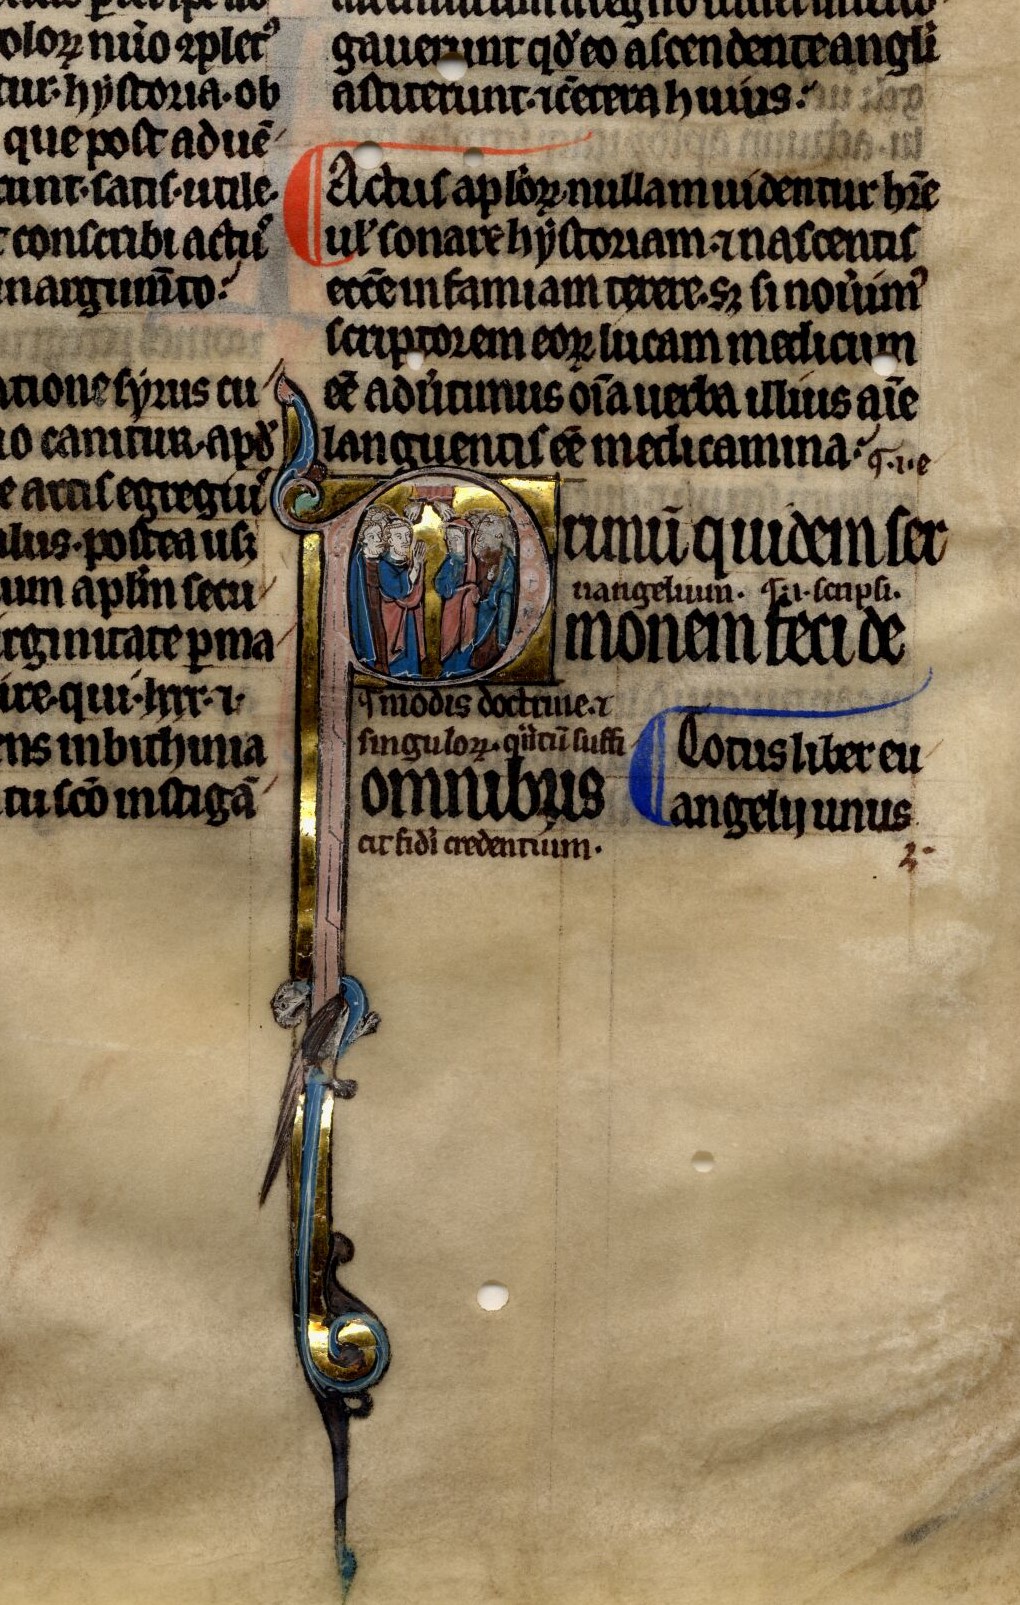 olorꝝ nūo ꝯpletꝰ
tur· hẏſtoria· ob
que poſt aduē
cunt· ſatiſ· utile·
conſcribi actū
in argumēto·
atione ſẏrus cu
io canitur· apd̾
e artiſ egregiuſ
ulus· poſtea uſꝫ
ium aplm ſecu
irginitate ꝑma
ire· qui· lxx· ⁊
ens in bithinia
itu ſcō inſtigā
gauerunt qd̾ eo aſcendente angli
aſtiterunt· ⁊ cētera huius·
Actuſ aplorꝝ nullam uidentur hr̄e
ul̾ ſonare hẏſtoriam· ⁊ naſcentiſ
eccē infamiam texere· sꝫ ſi nou̾imꝰ
ſcriptorem eorꝝ lucam medicum
eē· adu̾timus oīa uerba illius aīe
languentiſ eē medicamina·
¶·i·e
Primū quidem ſer
uangelium· ¶·i·ſcripſi·
monem feci de
¶ modis doctrine· ⁊
ſingulorꝝ· qͣ̄tū ſuffi
omnibus
cit fidi credentium·
Totus liber eu
angelij unus